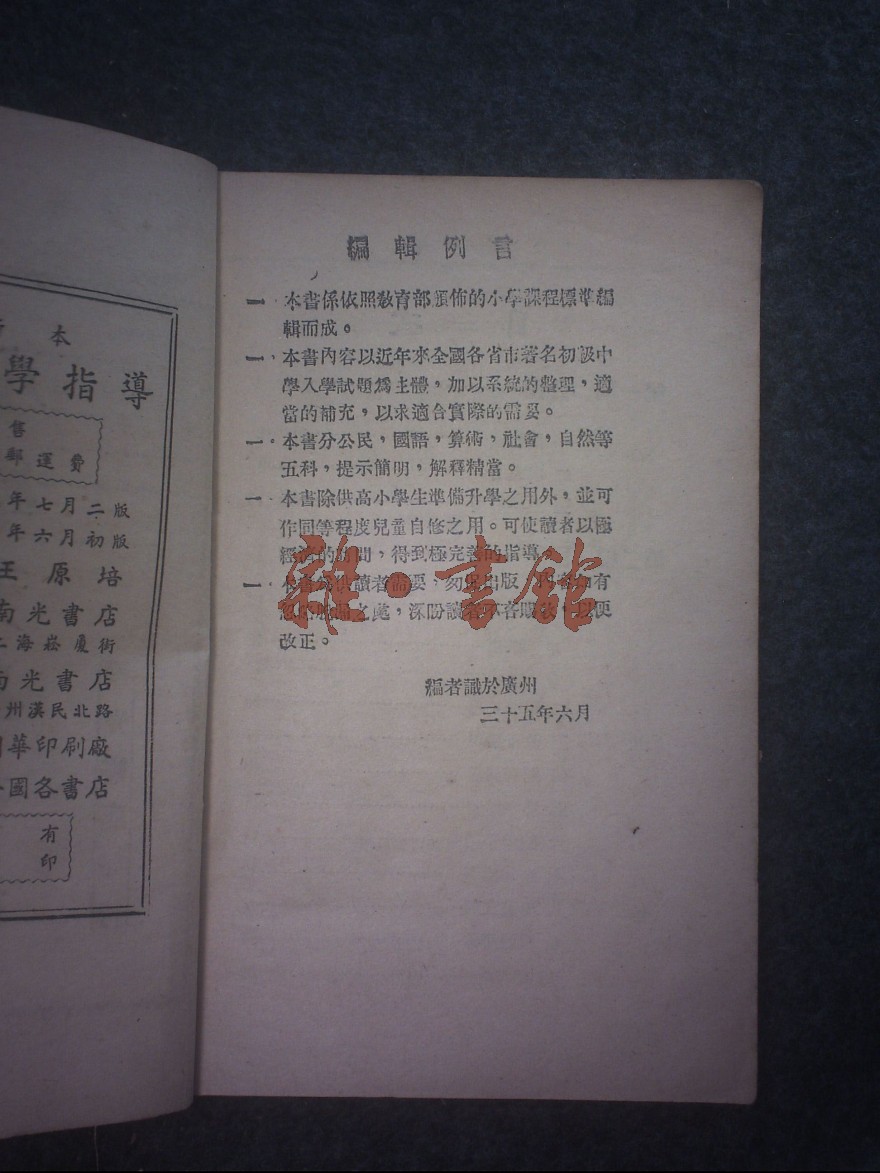 本
學指導
售
郵運費
年七月二版
年六月初版
王原培
南光書店
上海崧廈街
南光書店
州漢民北路
華印刷廠
國各書店
有
印
編輯例言
一・本書係依照教育部頒佈的小學課程標準編
輯而成。
一・本書內容以近年來全國各省市著名初級中
學入學試題爲主體，加以系統的整理，適
當的補充，以求適合實際的需要。
一。本書分公民，國語，算術，社會，自然等
五科，提示簡明，解釋精當。
一・本書除供高小學生準備升學之用外，並可
作同等程度兒童自修之用。可使讀者以極
經濟的時間，得到極完善的指導。
一・本書爲供讀者需要，匆促出版，內容如有
忽略脫漏之處，深盼讀者不吝賜教，以便
改正。
編者識於廣州
三十五年六月
雜・書館